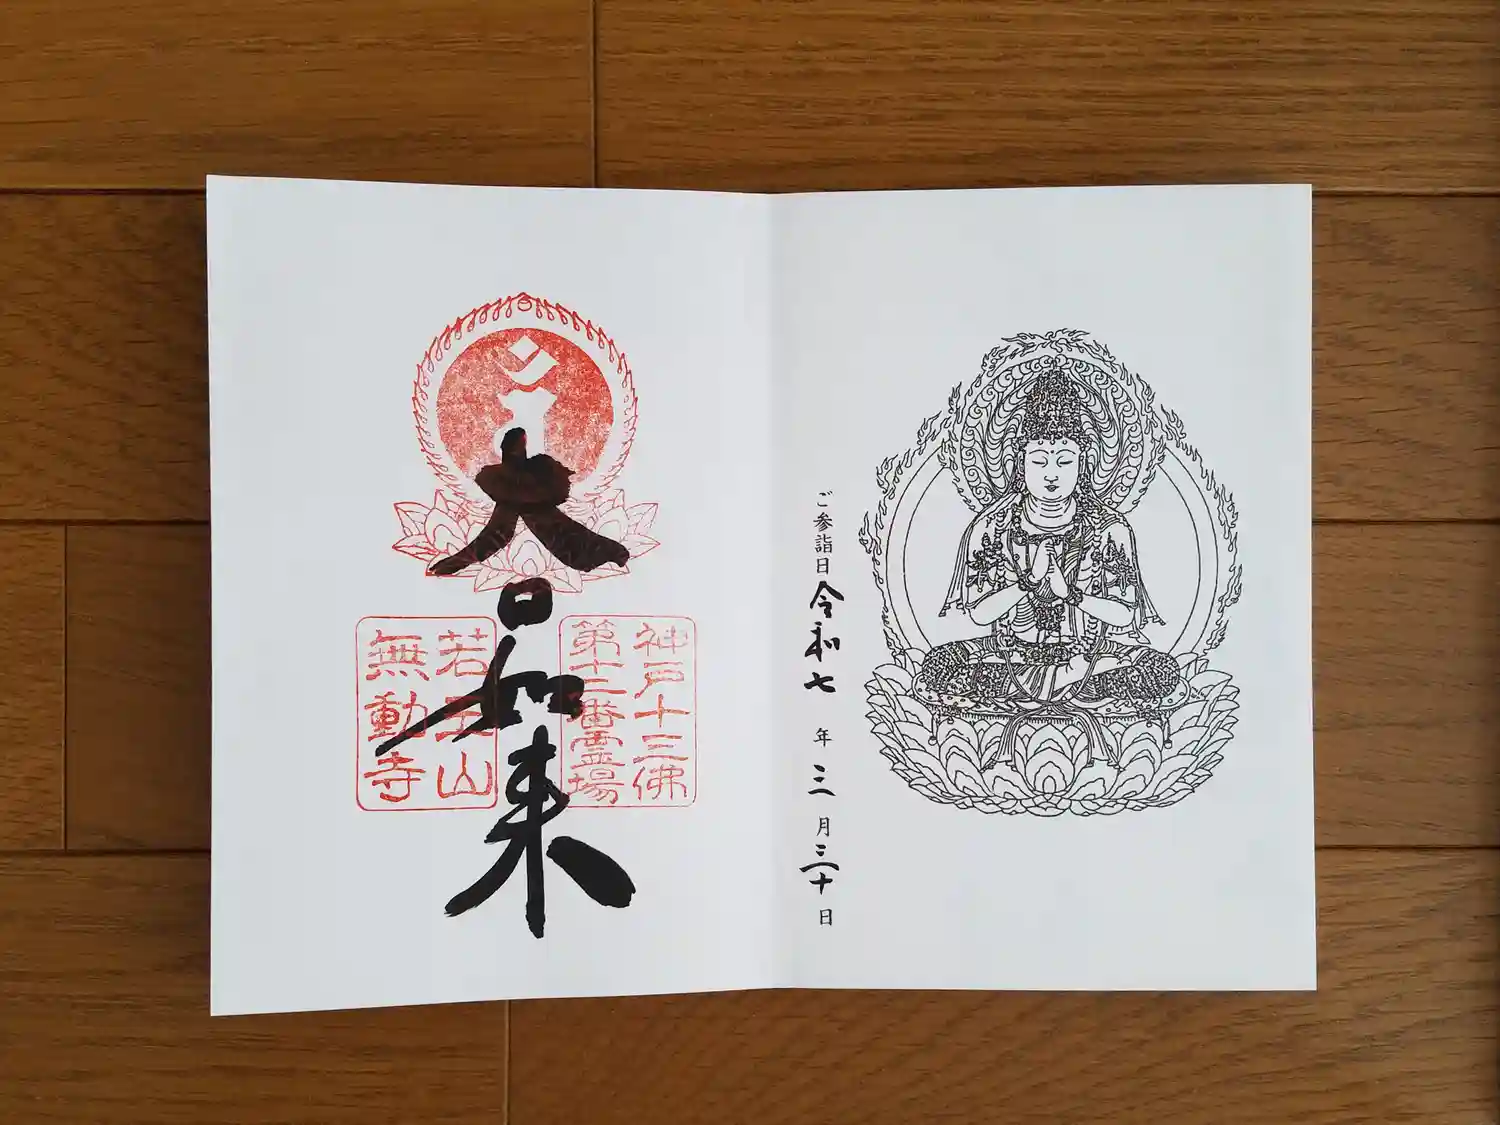 ご参詣日 令和七年三月三十日
大日如来
神戸十三佛
第十二番霊場
若王山
無動寺